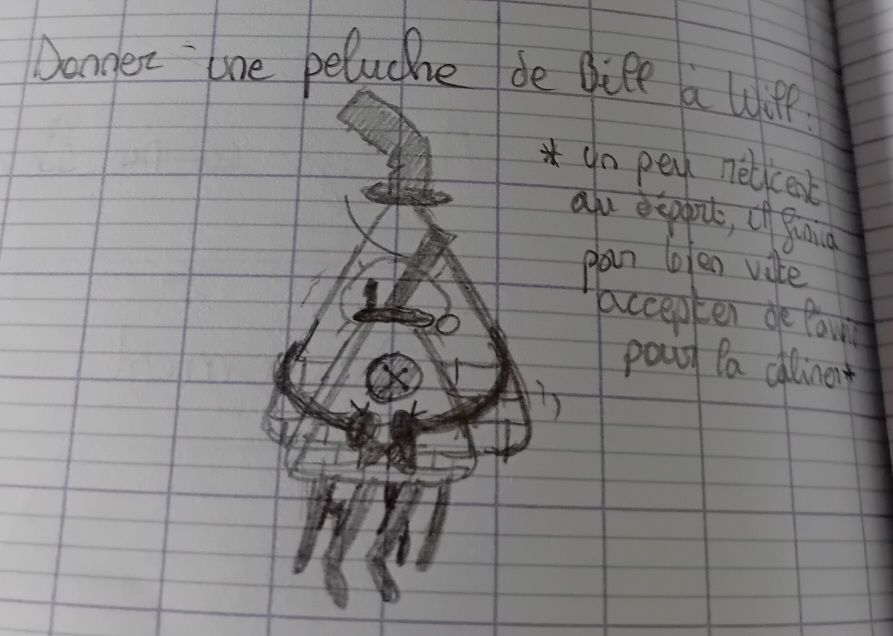 Donner une peluche de Bill à Will.
* Un peu réticent
au départ, il finira
par bien vite
accepter de l'avoir
pour la câliner*